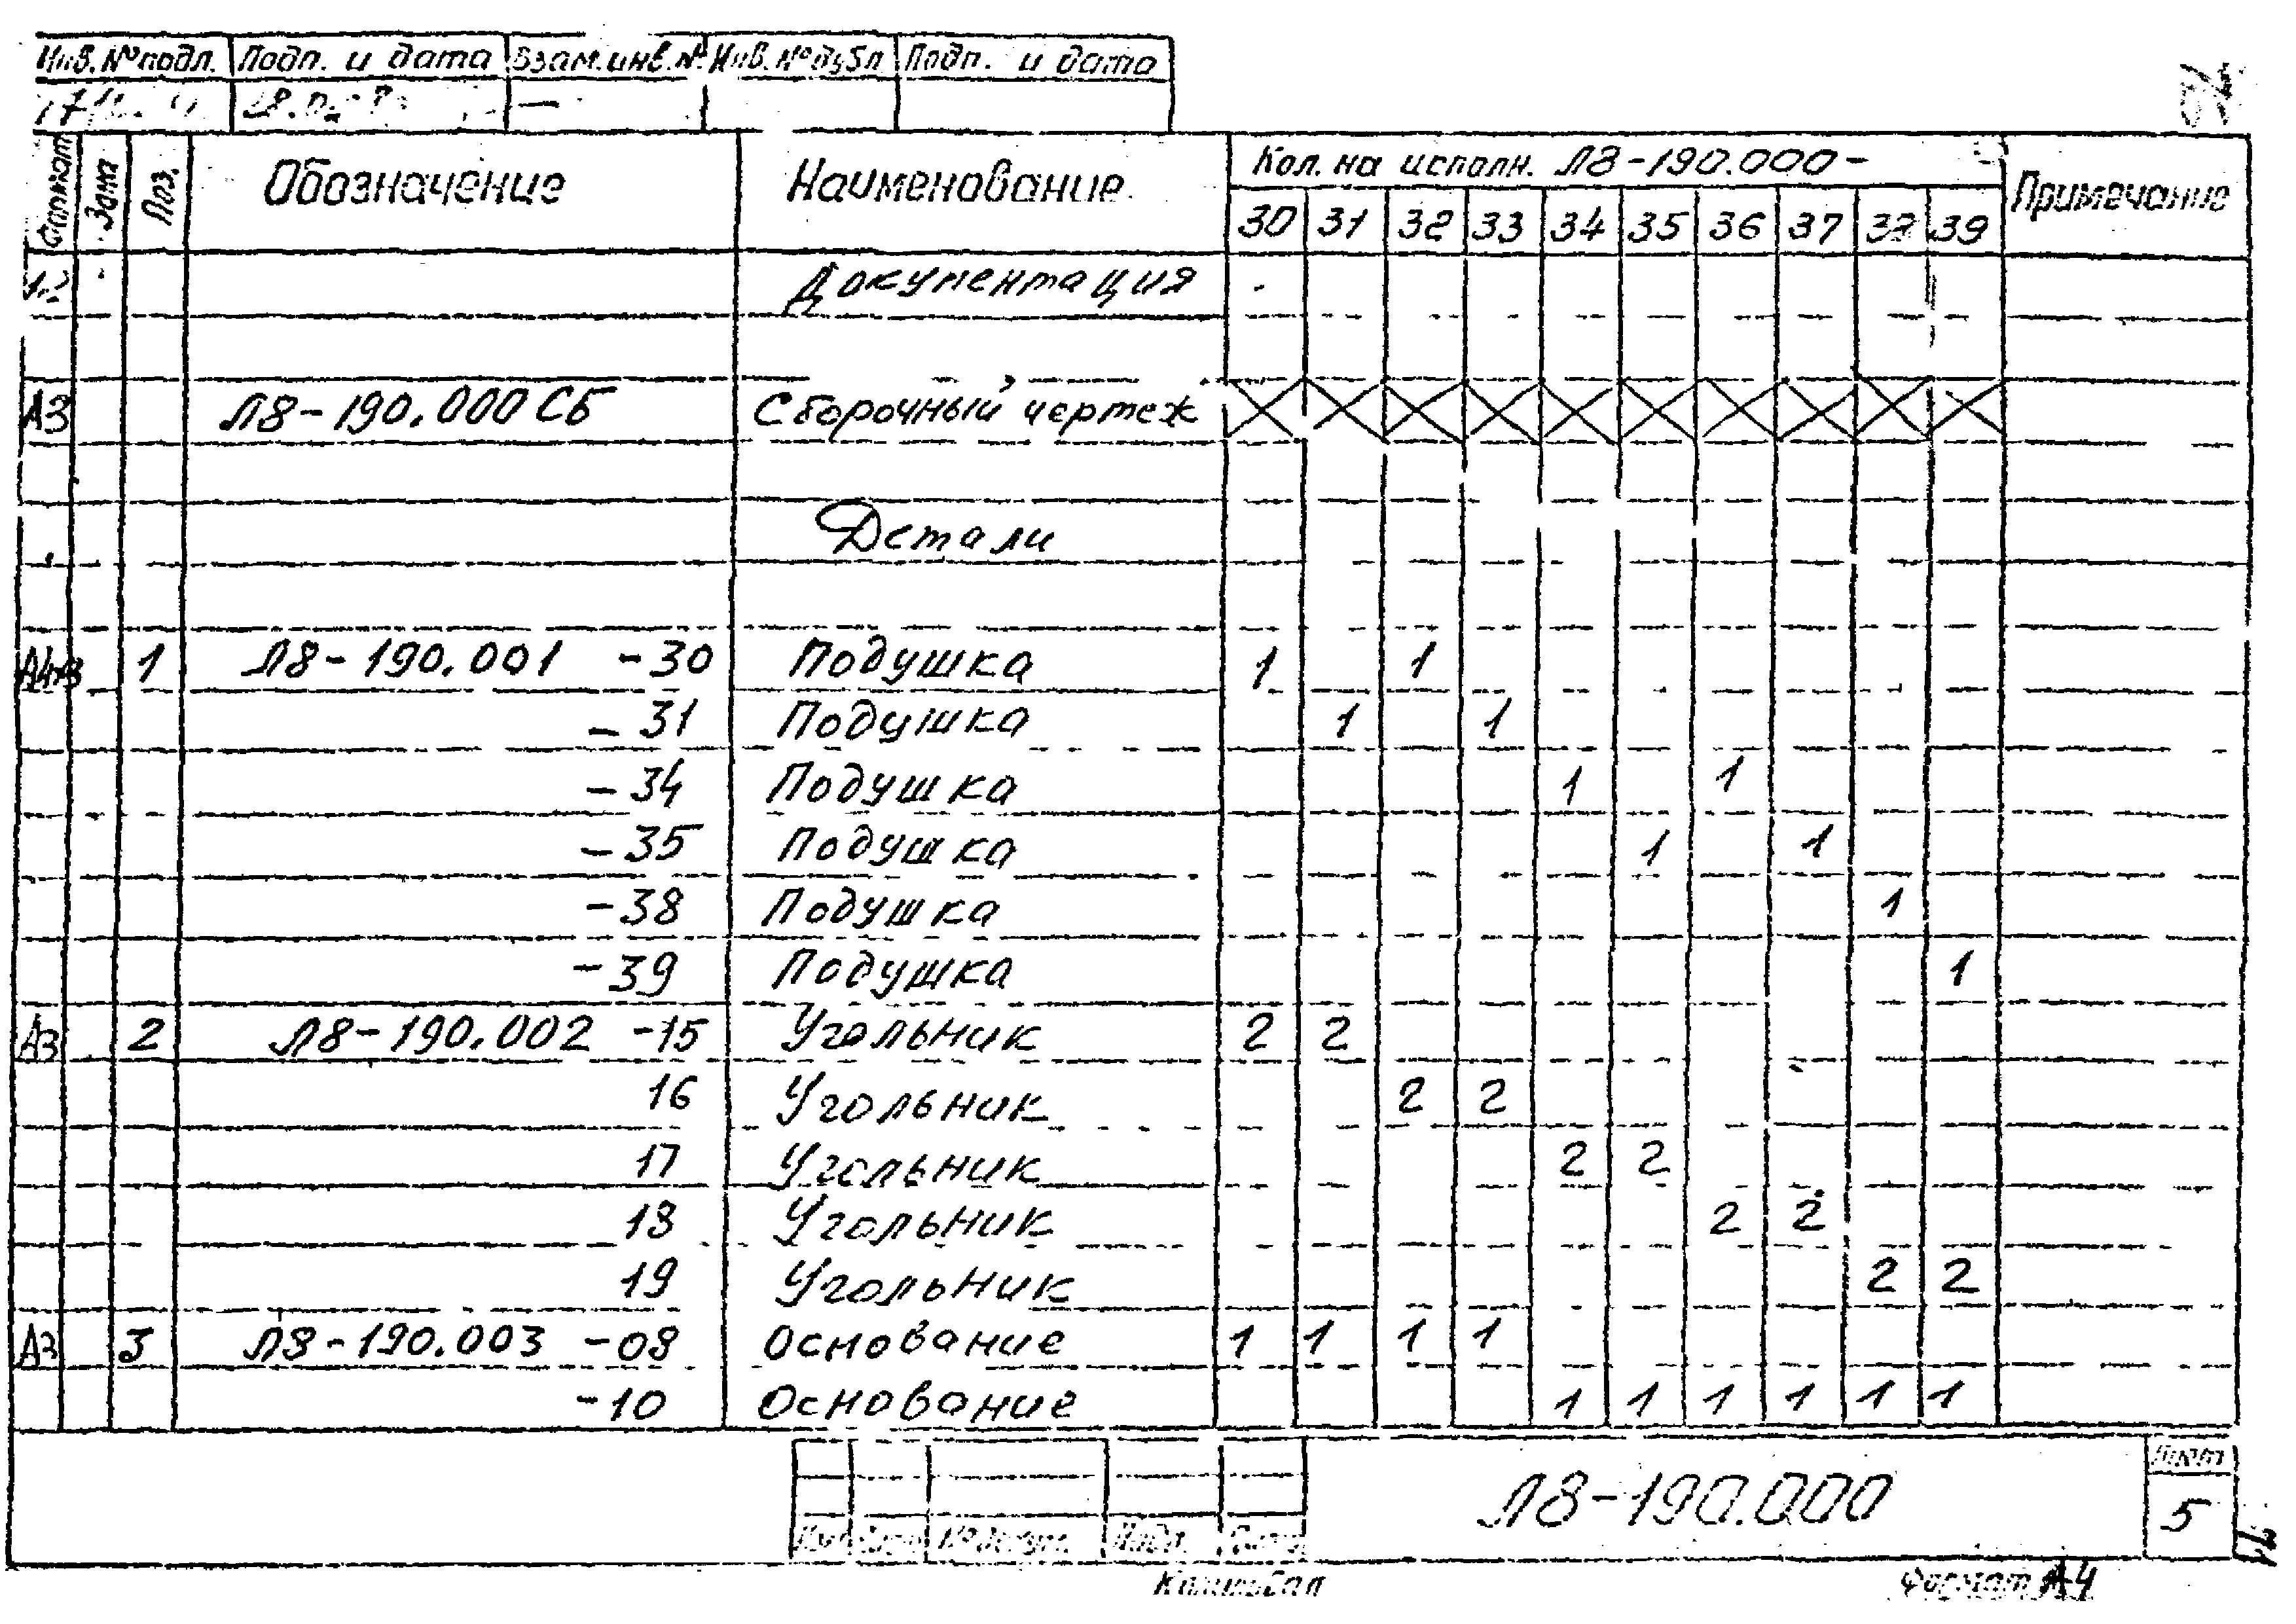 Инв. № подл. Подп. и дата Взам. инв. № Инв. № дубл Подп. и дата
Формат Зона Поз. Обозначение Наименование Кол. на исполн. Л8-190.000- Примечание
30 31 32 33 34 35 36 37 38 39
Документация
А3 Л8-190.000 СБ Сборочный чертеж
Детали
1 Л8-190.001 -30 Подушка 1 1
-31 Подушка 1 1
-34 Подушка 1 1
-35 Подушка 1 1
-38 Подушка 1
-39 Подушка 1
А3 2 Л8-190.002 -15 Угольник 2 2
16 Угольник 2 2
17 Угольник 2 2
18 Угольник 2 2
19 Угольник 2 2
А3 3 Л8-190.003 -08 Основание 1 1 1 1
-10 Основание 1 1 1 1 1 1
Л8-190.000
Лист
5
Копировал Формат А4